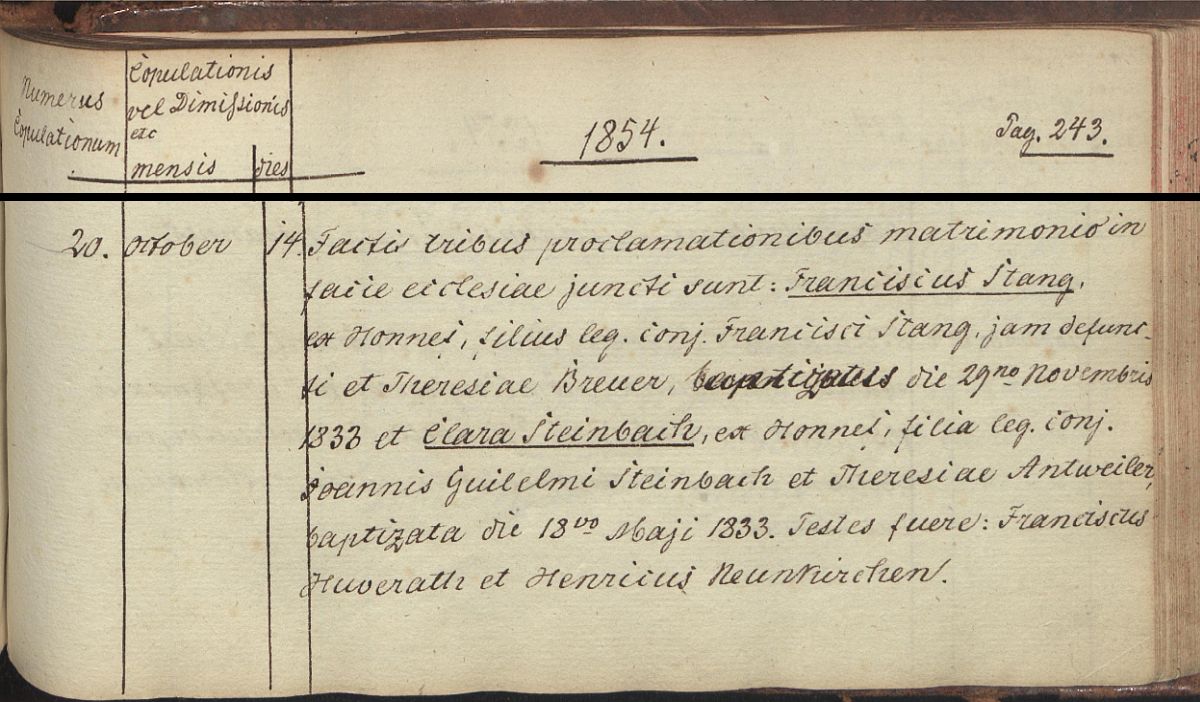 Numerus
Copulationum
Copulationis
vel Dimissionis
etc
mensis
dies
1854.
Pag. 243.
20.
October
14.
Factis tribus proclamationibus matrimonio in
facie ecclesiae juncti sunt: Franciscus Stang,
ex Honnef, filius leg. conj. Francisci Stang, jam defunc-
ti et Theresiae Breuer, baptizatus die 29no Novembris
1833 et Clara Steinbach, ex Honnef, filia leg. conj.
Joannis Guilelmi Steinbach et Theresiae Antweiler,
baptizata die 18vo Maji 1833. Testes fuere: Franciscus
Huverath et Henricus Neunkirchen.